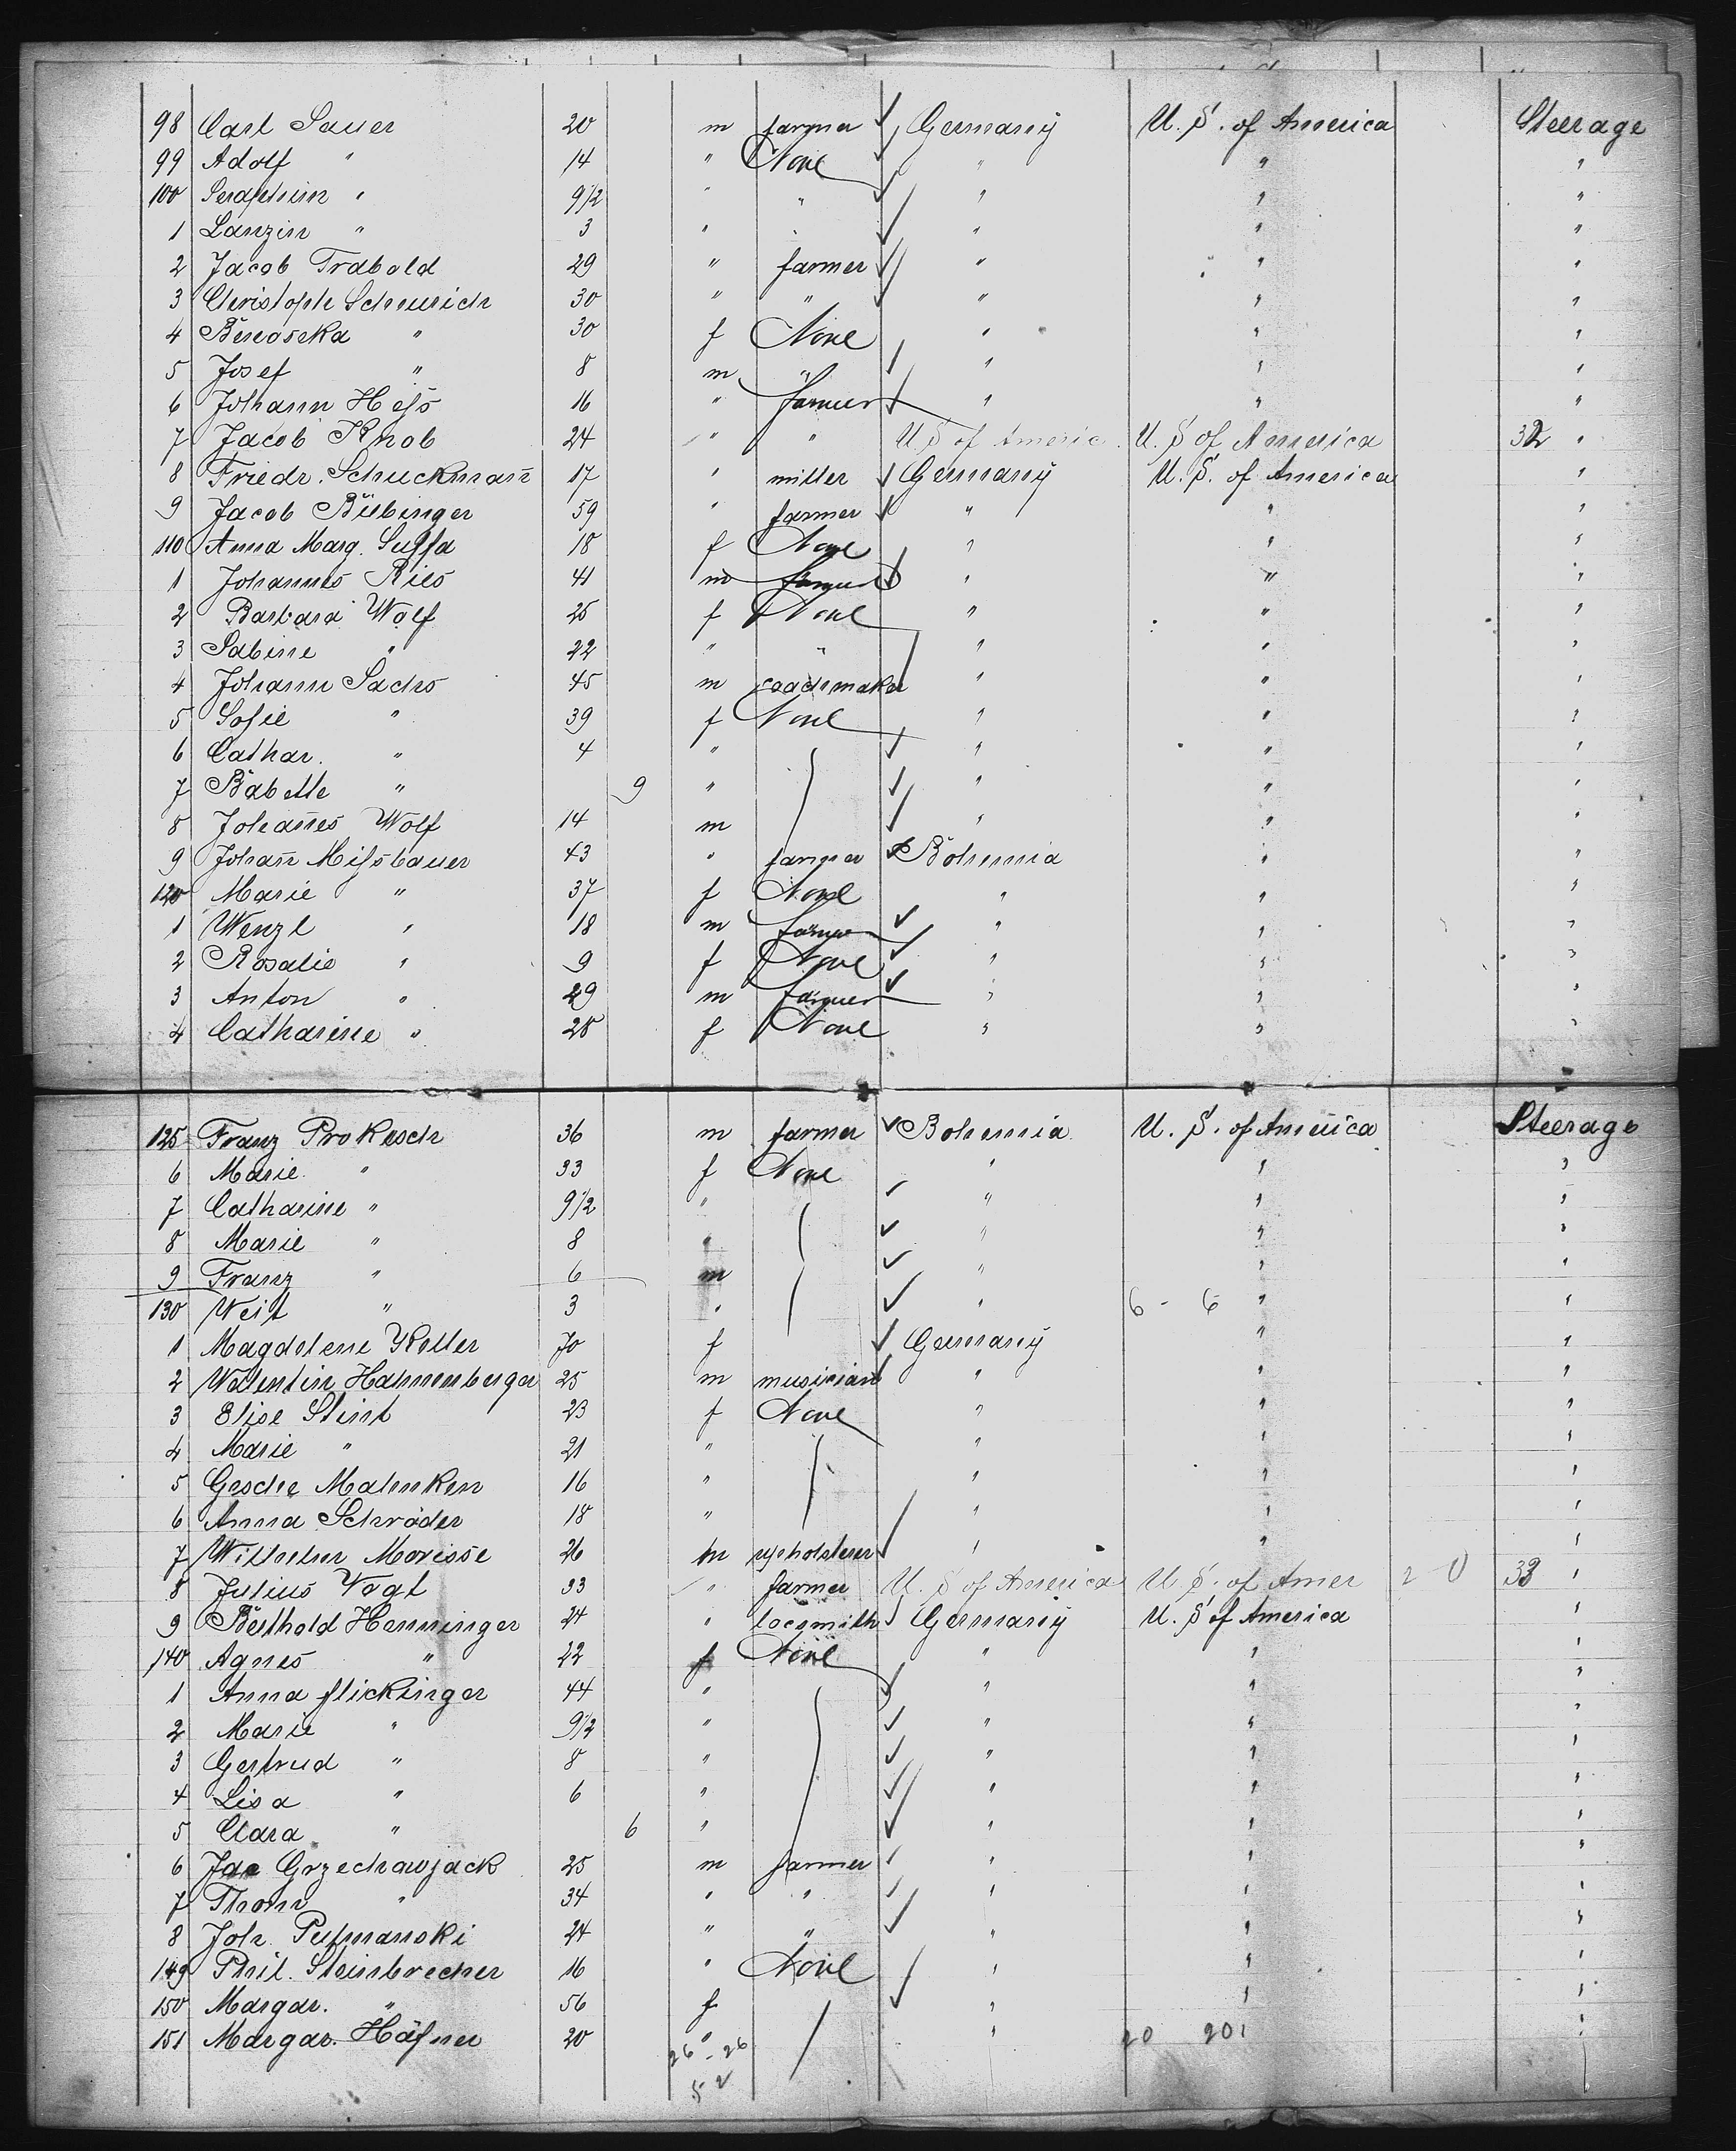 98 Carl Sauer 20 m farmer Germany U. S. of America Steerage
99 Adolf " 14 " None " " "
100 Seraphim " 9 1/2 " " " " "
1 Lanzin " 3 " " " " "
2 Jacob Trabold 29 " farmer " " "
3 Christoph Scheurich 30 " " " " "
4 " 30 f None " " "
5 Josef " 8 m " " " "
6 Johann Heſs 16 " farmer " " "
7 Jacob Knob 24 " " U. S of Americ U. S of America 32 "
8 Friedr. Schuckmañ 17 " miller Germany U. S. of America "
9 Jacob Bübinger 59 " farmer " " "
110 Anna Marg. Suffa 18 f None " " "
1 Johannes Ries 41 m farmer " " "
2 Barbara Wolf 25 f None " " "
3 Sabine " 22 " " " " "
4 Johann Sachs 45 m coachmaker " " "
5 Sofie " 39 f None " " "
6 Cathar. " 4 " " " "
7 Babette " 9 " " " "
8 Johañes Wolf 14 m " " "
9 Johañ Miſsbauer 43 " farmer Bohemia " "
120 Marie " 37 f None " " "
1 Wenzl " 18 m farmer " " "
2 Rosalie " 9 f None " " "
3 Anton " 29 m farmer " " "
4 Catharine " 28 f None " " "
125 Franz Prokesch 36 m farmer Bohemia U. S. of America Steerage
6 Marie " 33 f None " " "
7 Catharine " 9 1/2 " " " "
8 Marie " 8 " " " "
9 Franz " 6 m " " "
130 Veit " 3 " " 6 - 6 " "
1 Magdelene Keller 70 f Germany " "
2 Valentin Hammenberger 25 m musician " " "
3 Elise Stint 23 f None " " "
4 Marie " 21 " " " "
5 Gesche Mahnken 16 " " " "
6 Anna Schröder 18 " " " "
7 Wilhelm Morisse 26 m upholsterer " " "
8 Julius Vogt 33 " farmer U. S of America U. S. of Amer 2 0 33 "
9 Berthold Henninger 24 " locsmith Germany U. S of America "
140 Agnes " 22 f None " " "
1 Anna flickinger 44 " " " "
2 Marie " 9 1/2 " " " "
3 Gertrud " 8 " " " "
4 Lisa " 6 " " " "
5 Clara " 6 " " " "
6 Jac Grzechawjack 25 m farmer " " "
7 Thom " 34 " " " " "
8 Joh. Pufmanski 24 " " " " "
149 Phil. Steinbrecher 16 " None " " "
150 Margar. " 56 f " " "
151 Margar. Häfner 20 " " 20 20 " "
26 - 26
52